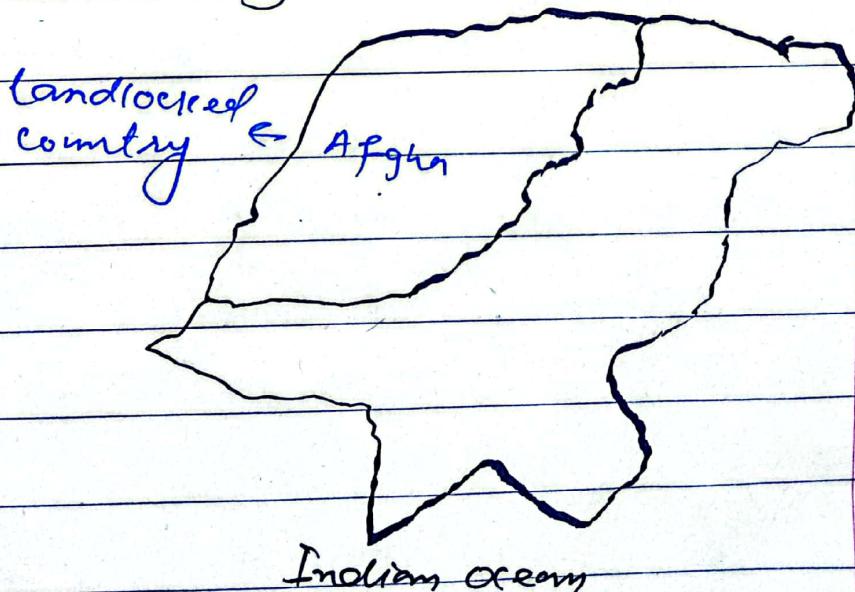 Landlocked
country ← Afgha
Indian Ocean